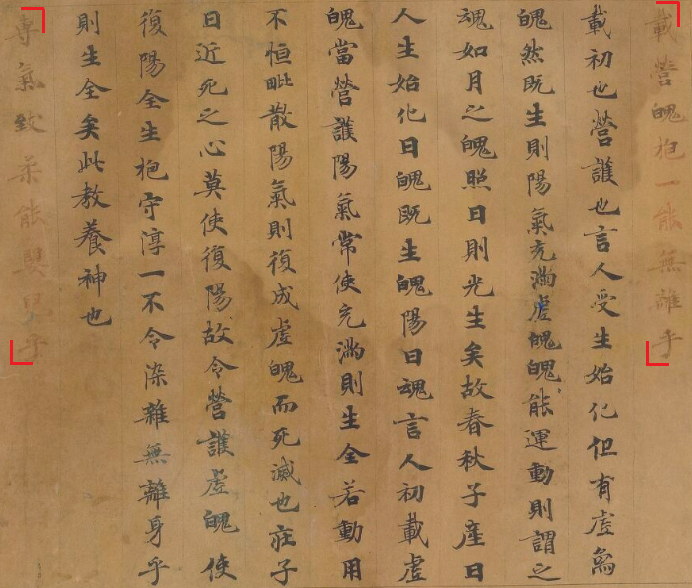 載營魄抱一能無離乎
載初也營護也言人受生始化但有虛象
魄然既生則陽氣充滿虛魄魄能運動則謂之
魂如月之魄照日則光生矣故春秋子産曰
人生始化曰魄既生魄陽曰魂言人初載虛
魄當營護陽氣常使充滿則生全若動用
不恒毗散陽氣則復成虛魄而死滅也莊子
曰近死之心莫使復陽故令營護虛魄使
復陽全生抱守淳一不令染雜無離身乎
則生全矣此教養神也
專氣致柔能嬰兒乎